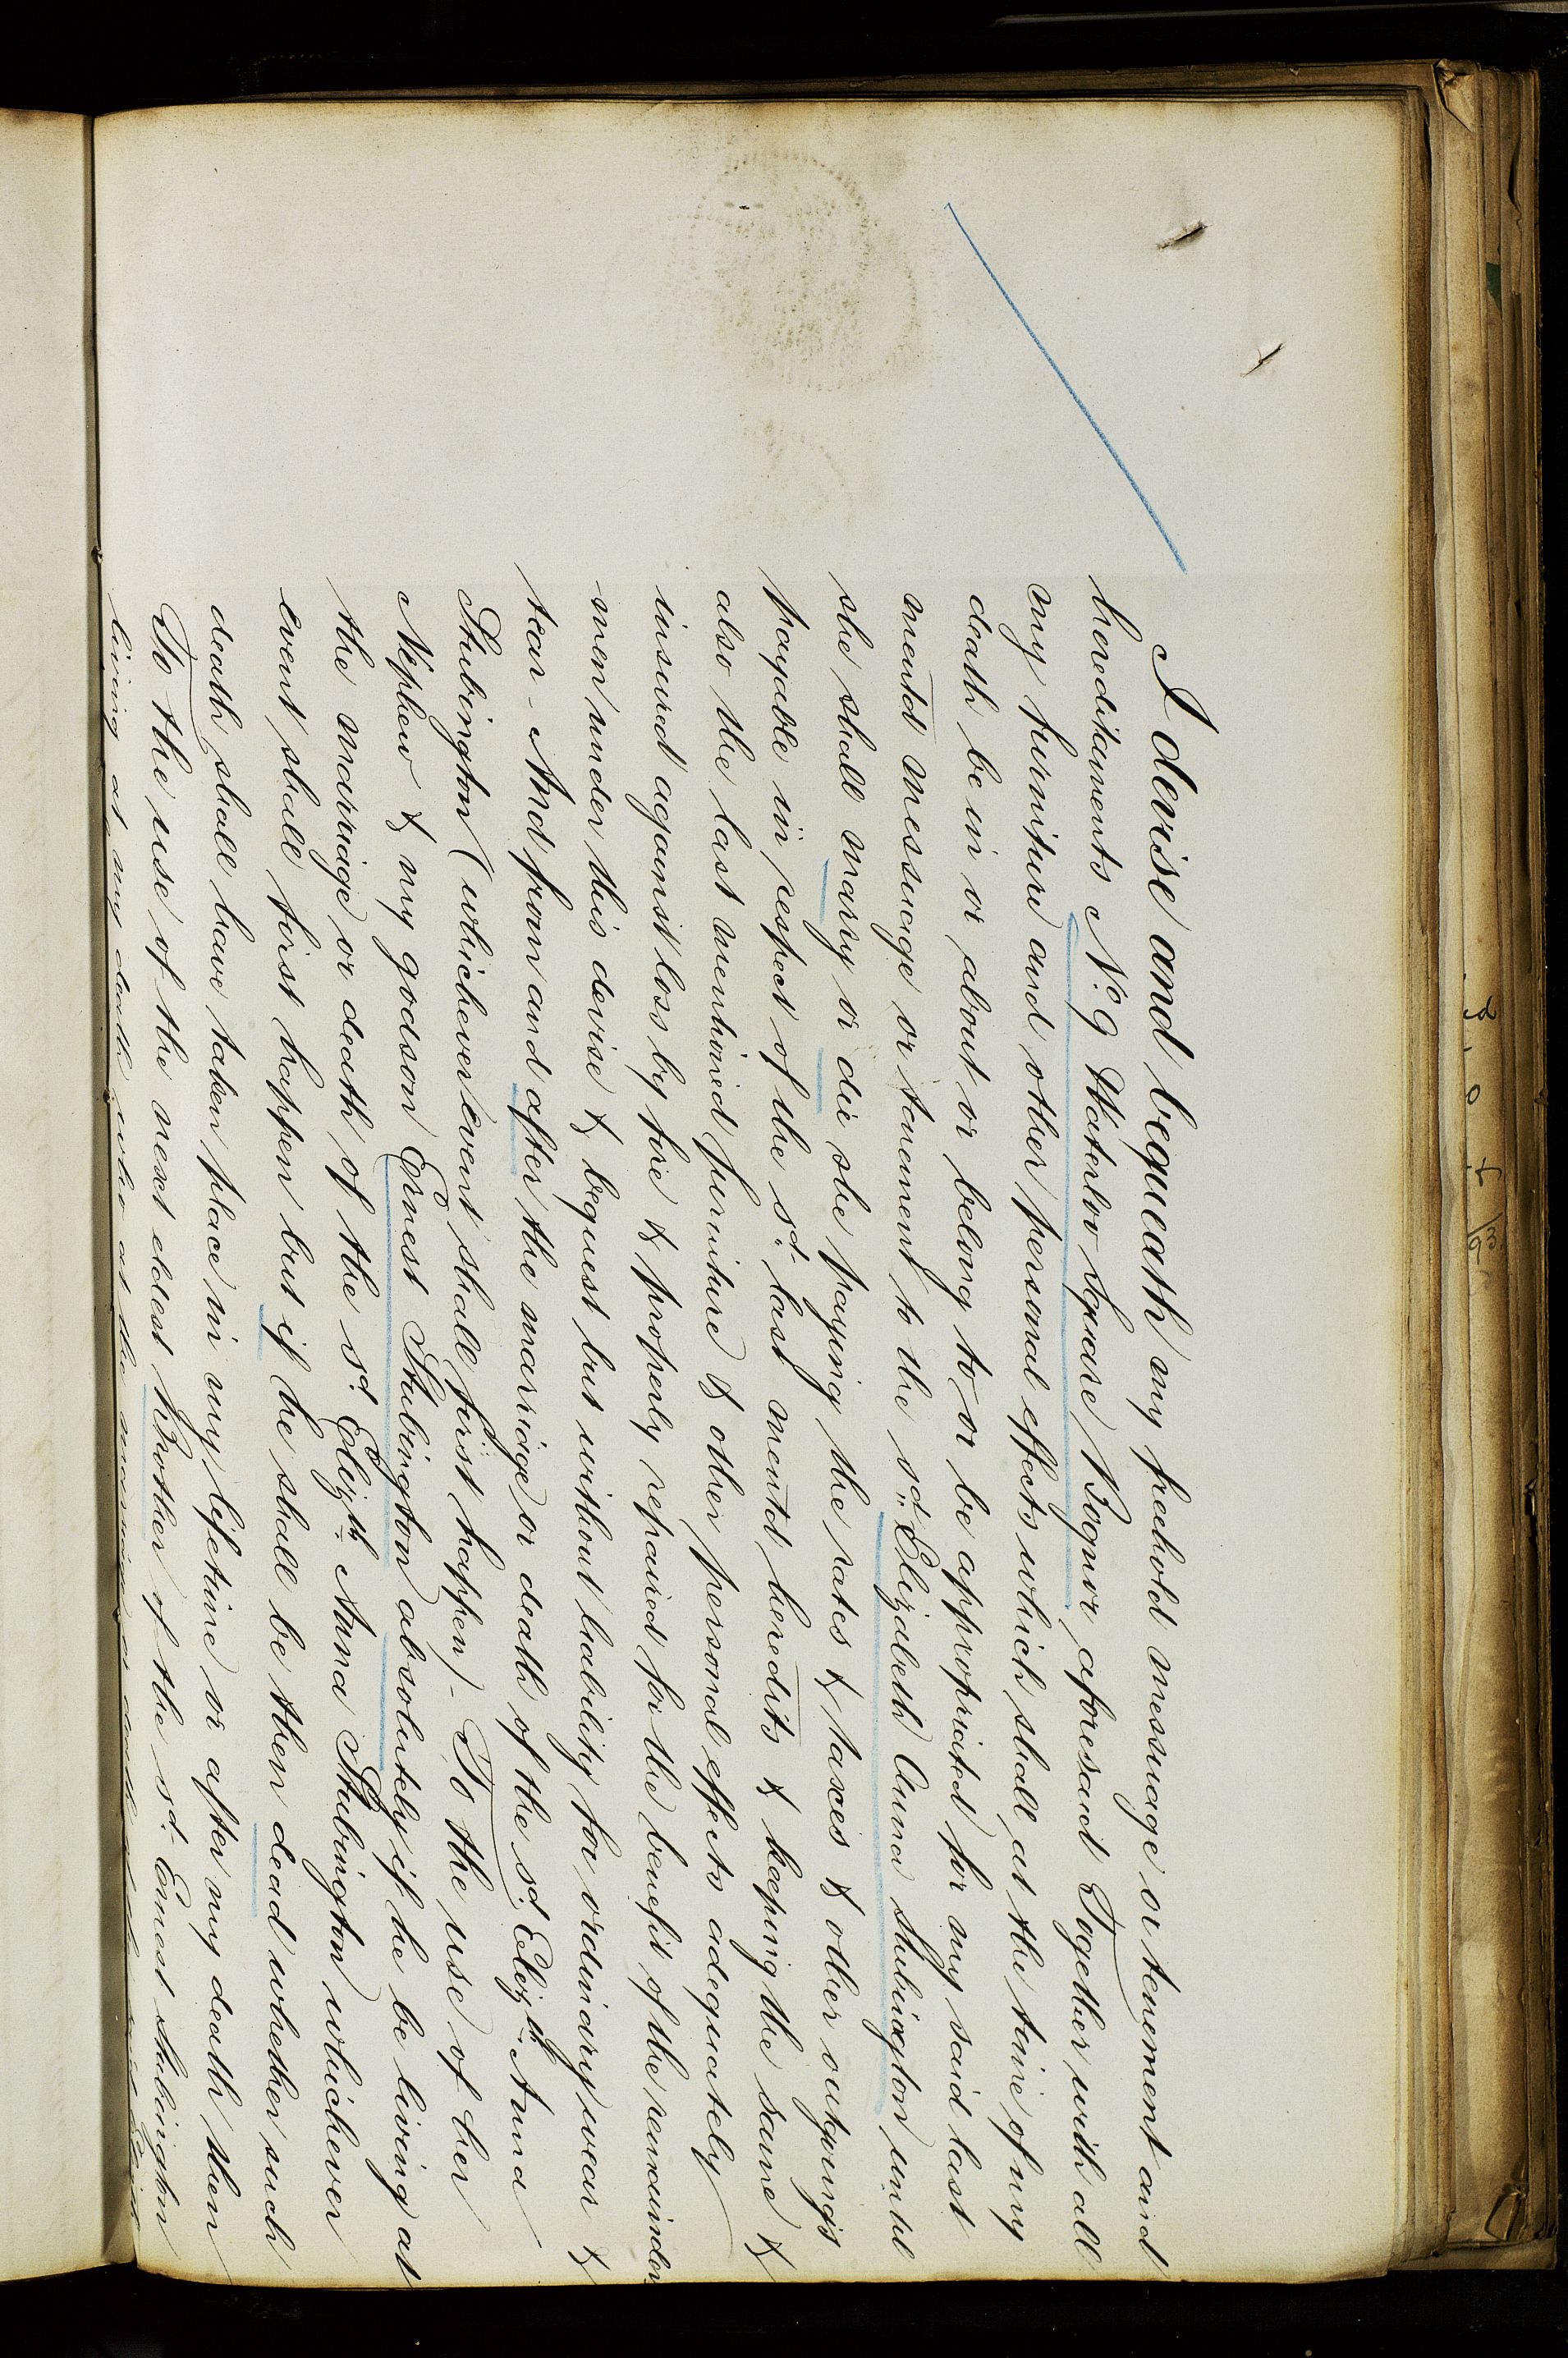 I devise and bequeath my freehold messuage or tenement and
hereditaments No. 9 Waterloo Square Bognor aforesaid Together with all
my furniture and other personal effects which shall at the time of my
death be in or about or belong to or be appropriated for my said last
mentd messuage or tenement to the sd. Elizabeth Anna Stubington until
she shall marry or die she paying the rates & taxes & other outgoings
payable in respect of the sd. last mentd heredits & keeping the same &
also the last mentioned furniture & other personal effects adequately
insured against loss by fire & properly repaired for the benefit of the remainder
men under this devise & bequest but without liability for ordinary wear &
tear - And from and after the marriage or death of the sd. Elizth. Anna
Stubington (whichever event shall first happen) - To the use of her
Nephew & my godson Ernest Stubington absolutely if he be living at
the marriage or death of the sd. Elizth. Anna Stubington whichever
event shall first happen but if he shall be then dead whether such
death shall have taken place in my lifetime or after my death then
To the use of the next eldest Brother of the sd. Ernest Stubington
living at my death who at the marriage or death of the said
ed
o
93.